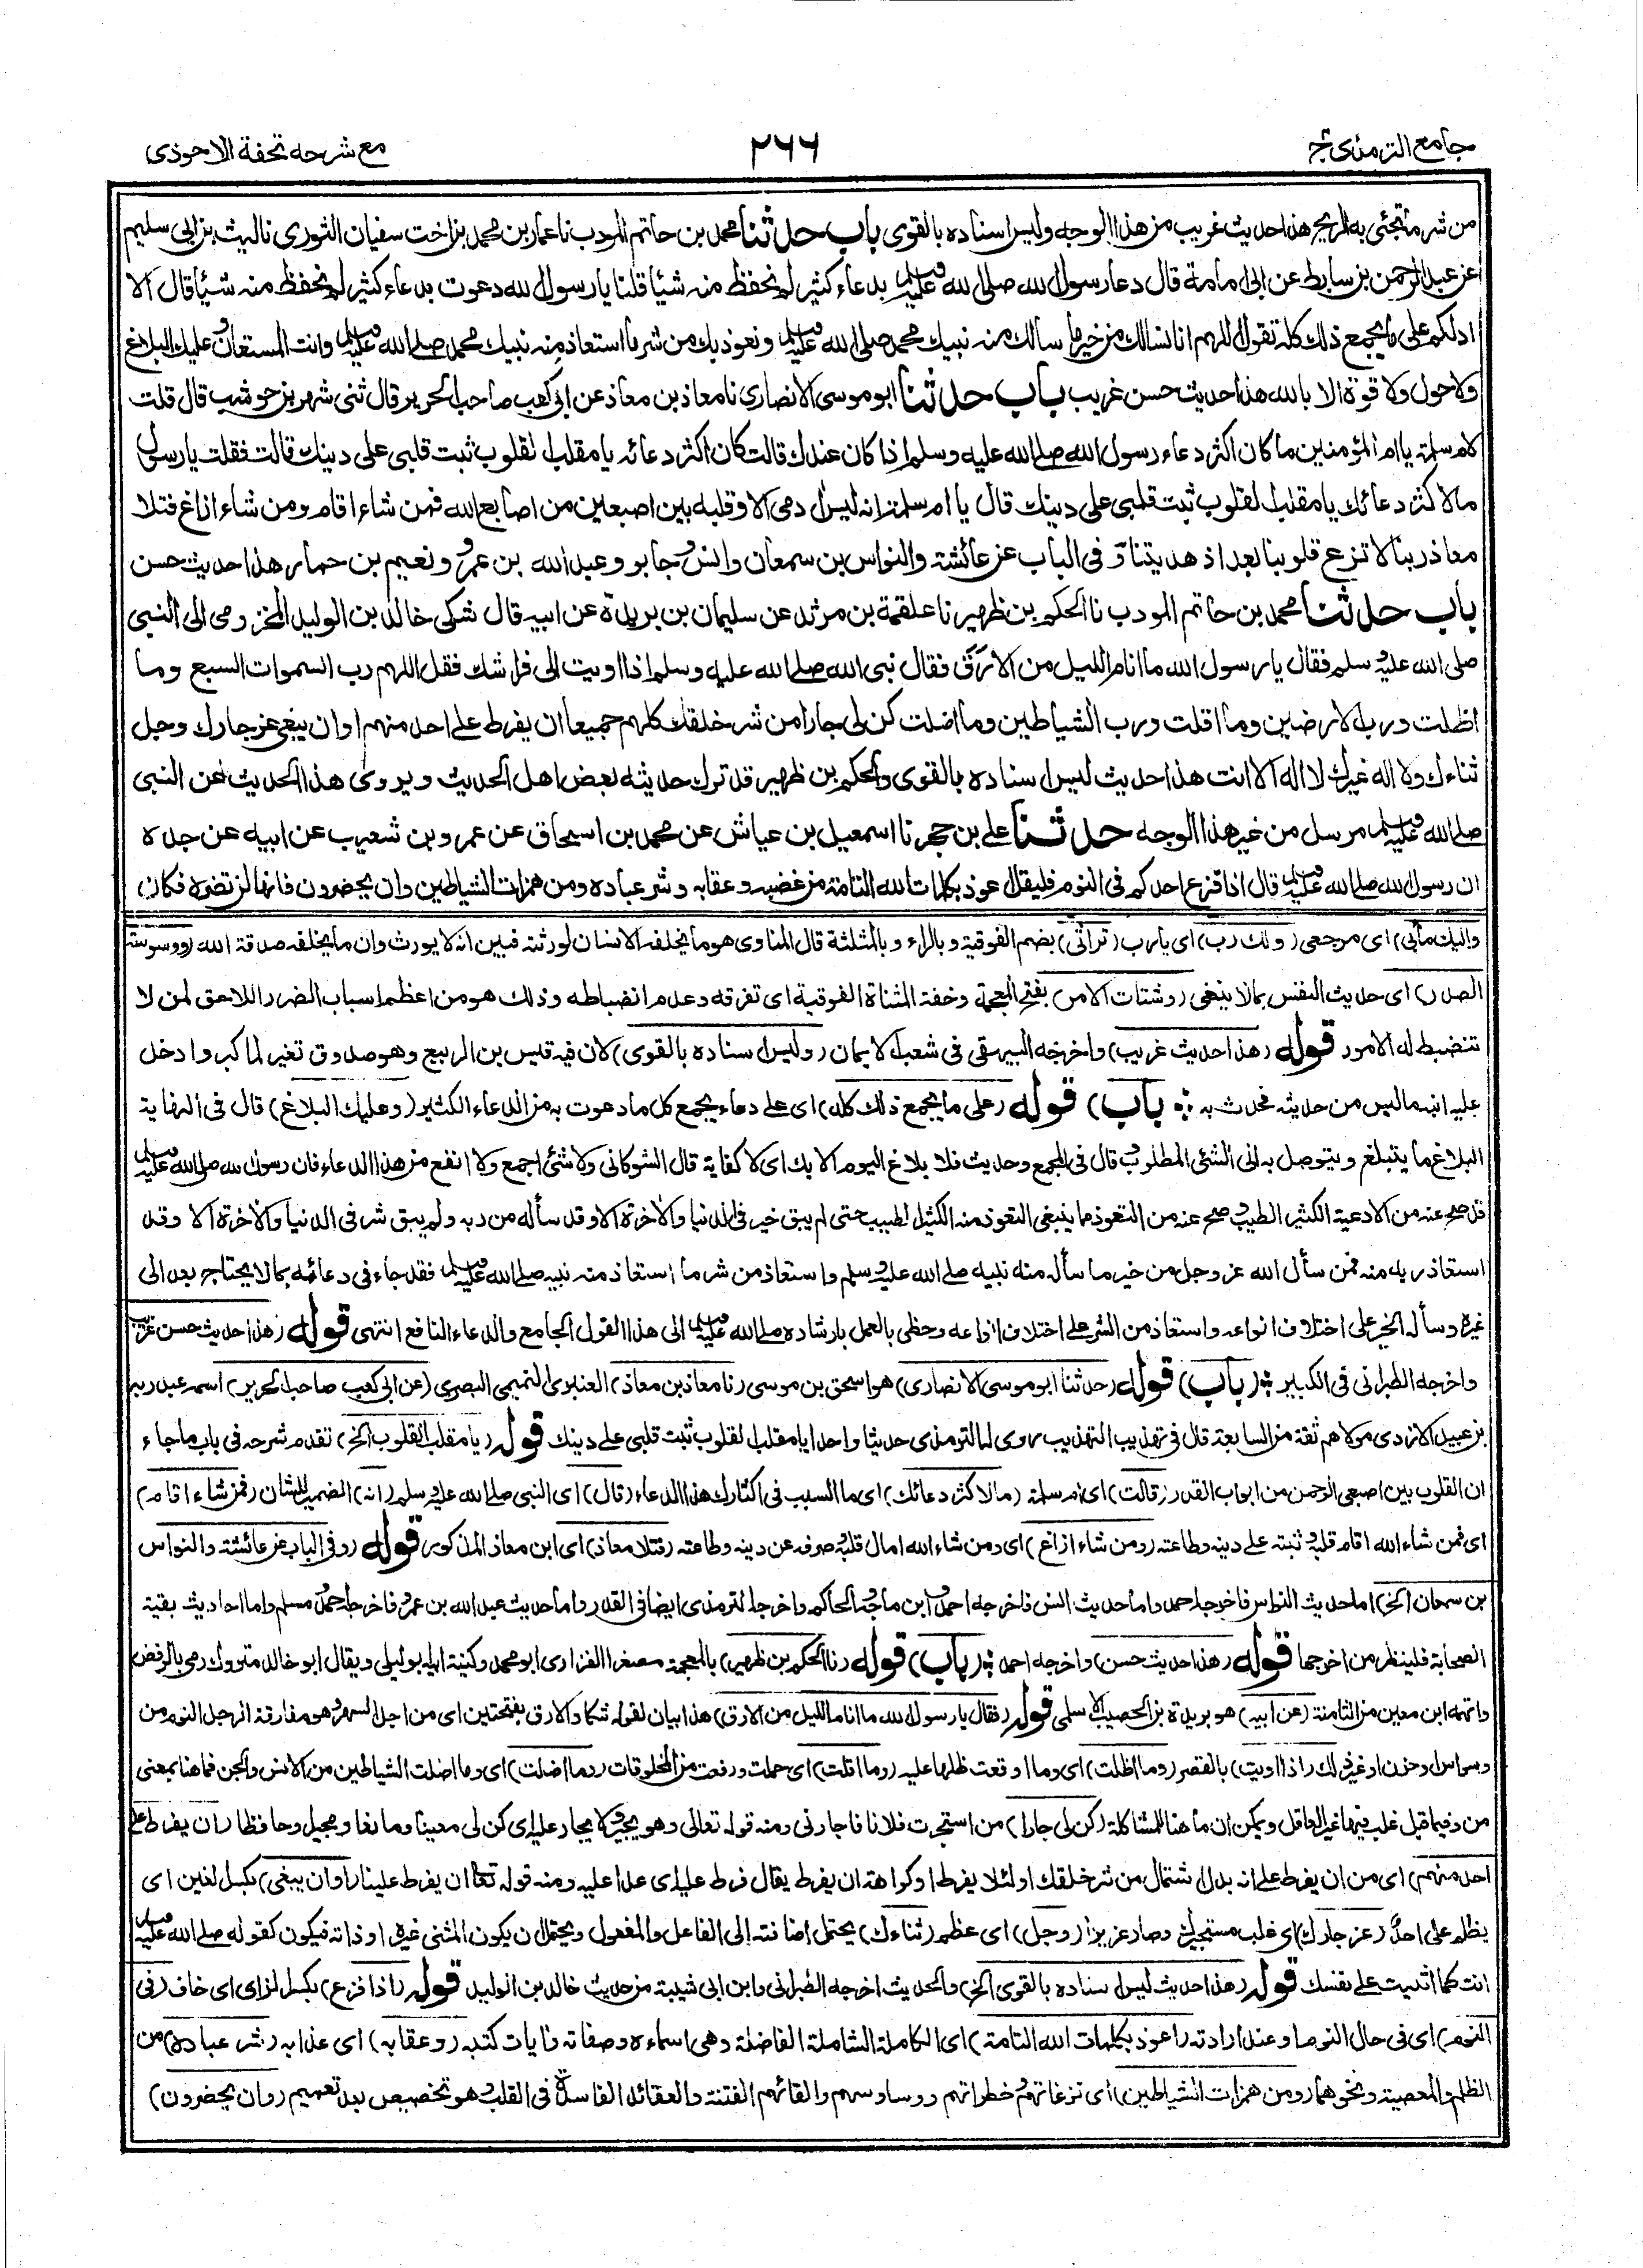 جامع الترمذی ج
۲۶۶
مع شرحه تحفة الاحوذی
من شر ما تجئی به الریح هذا حدیث غریب من هذا الوجه ولیس اسناده بالقوی باب حدثنا محمد بن حاتم المودب نا عمار بن محمد بن اخت سفیان الثوری نا لیث بن ابی سلیم
عن عبد الرحمن بن سابط عن ابی امامة قال دعا رسول الله صلی الله علیه وسلم بدعاء کثیر لم نحفظ منه شیئا قلنا یا رسول الله دعوت بدعاء کثیر لم نحفظ منه شیئا قال الا
ادلکم علی ما یجمع ذلک کله تقول اللهم انا نسالک من خیر ما سالک منه نبیک محمد صلی الله علیه وسلم ونعوذ بک من شر ما استعاذ منه نبیک محمد صلی الله علیه وسلم وانت المستعان وعلیک البلاغ
ولا حول ولا قوة الا بالله هذا حدیث حسن غریب باب حدثنا ابو موسی الانصاری نا معاذ بن معاذ عن ابی کعب صاحب الحریر قال ثنی شهر بن حوشب قال قلت
لام سلمة یا ام المؤمنین ما کان اکثر دعاء رسول الله صلی الله علیه وسلم اذا کان عندک قالت کان اکثر دعائه یا مقلب القلوب ثبت قلبی علی دینک قالت فقلت یا رسول
ما لاکثر دعائک یا مقلب القلوب ثبت قلبی علی دینک قال یا ام سلمة انه لیس ادمی الا وقلبه بین اصبعین من اصابع الله فمن شاء اقام ومن شاء ازاغ فتلا
معاذ ربنا لا تزغ قلوبنا بعد اذ هدیتنا و فی الباب عن عائشة والنواس بن سمعان وانس وجابر وعبد الله بن عمرو ونعیم بن حمار هذا حدیث حسن
باب حدثنا محمد بن حاتم المودب نا الحکم بن ظهیر نا علقمة بن مرثد عن سلیمان بن بریدة عن ابیه قال شکی خالد بن الولید المخزومی الی النبی
صلی الله علیه وسلم فقال یا رسول الله ما انام اللیل من الارق فقال نبی الله صلی الله علیه وسلم اذا اویت الی فراشک فقل اللهم رب السموات السبع وما
اظلت ورب الارضین وما اقلت ورب الشیاطین وما اضلت کن لی جارا من شر خلقک کلهم جمیعا ان یفرط علی احد منهم او ان یبغی عز جارک وجل
ثناءک ولا اله غیرک لا اله الا انت هذا حدیث لیس اسناده بالقوی والحکم بن ظهیر قد ترک حدیثه بعض اهل الحدیث ویروی هذا الحدیث عن النبی
صلی الله علیه وسلم مرسل من غیر هذا الوجه حدثنا علی بن حجر نا اسمعیل بن عیاش عن محمد بن اسحاق عن عمرو بن شعیب عن ابیه عن جده
ان رسول الله صلی الله علیه وسلم قال اذا فزع احدکم فی النوم فلیقل اعوذ بکلمات الله التامة من غضبه وعقابه وشر عباده ومن همزات الشیاطین وان یحضرون فانها لن تضره فکان
والیک مأبی) ای مرجعی (ولک رب) ای یا رب (تراثی) بضم الفوقیة وبالراء وبالمثلثة قال المناوی هو ما یخلفه الانسان لورثته فبین انه لا یورث وان ما یخلفه صدقة الله (ووسوسة
الصدر) ای حدیث النفس بما لا ینبغی (وشتات الامر) بفتح المعجمة وخفة المثناة الفوقیة ای تفرقه وعدم انضباطه وذلک هو من اعظم اسباب الضرر اللاحق لمن لا
تنضبط له الامور قوله (هذا حدیث غریب) واخرجه البیهقی فی شعب الایمان (ولیس اسناده بالقوی) لان فیه قیس بن الربیع وهو صدوق تغیر لما کبر وادخل
علیه ابنه ما لیس من حدیثه فحدث به : باب) قوله (علی ما یجمع ذلک کله) ای علی دعاء یجمع کل ما دعوت به من الدعاء الکثیر (وعلیک البلاغ) قال فی النهایة
البلاغ ما یتبلغ ویتوصل به الی الشئی المطلوب وقال فی المجمع وحدیث فلا بلاغ الیوم الا بک ای لا کفایة قال الشوکانی ولا شئی اجمع ولا انفع من هذا الدعاء فان رسول الله صلی الله علیه وسلم
قد صح عنه من الادعیة الکثیر الطیب وصح عنه من التعوذ مما ینبغی التعوذ منه الکثیر الطیب حتی لم یبق خیر فی الدنیا والآخرة الا وقد سأله من ربه ولم یبق شر فی الدنیا والآخرة الا وقد
استعاذ ربه منه فمن سأل الله عز وجل من خیر ما سأله منه نبیه صلی الله علیه وسلم واستعاذ من شر ما استعاذ منه نبیه صلی الله علیه وسلم فقد جاء فی دعائه بما لا یحتاج بعد الی
غیره وسأله الخیر علی اختلاف انواعه واستعاذ من الشر علی اختلاف انواعه وحظی بالعمل بارشاده صلی الله علیه وسلم الی هذا القول الجامع والدعاء النافع انتهی قوله (هذا حدیث حسن غریب
واخرجه الطبرانی فی الکبیر : (باب) قوله (حدثنا ابو موسی الانصاری) هو اسحق بن موسی (نا معاذ بن معاذ) العنبری التمیمی البصری (عن ابی کعب صاحب الحریر) اسمه عبد ربه
بن عبید الازدی مولاهم ثقة من السابعة قال فی تهذیب التهذیب روی له الترمذی حدیثا واحدا یا مقلب القلوب ثبت قلبی علی دینک قوله (یا مقلب القلوب الخ) تقدم شرحه فی باب ما جاء
ان القلوب بین اصبعی الرحمن من ابواب القدر (قالت) ای ام سلمة (ما لاکثر دعائک) ای ما السبب فی اکثارک هذا الدعاء (قال) ای النبی صلی الله علیه وسلم (انه) الضمیر للشان (فمن شاء اقام)
ای فمن شاء الله اقام قلبه وثبته علی دینه وطاعته (ومن شاء ازاغ) ای ومن شاء الله امال قلبه وصرفه عن دینه وطاعته (فتلا معاذ) ای ابن معاذ المذکور قوله (وفی الباب عن عائشة والنواس
بن سمعان الخ) اما حدیث النواس فاخرجه احمد واما حدیث انس فاخرجه احمد وابن ماجة والحاکم واخرجه الترمذی ایضا فی القدر واما حدیث عبد الله بن عمرو فاخرجه احمد ومسلم واما احادیث بقیة
الصحابة فلینظر من اخرجها قوله (هذا حدیث حسن) واخرجه احمد : (باب) قوله (نا الحکم بن ظهیر) بالمعجمة مصغرا الفزاری ابو محمد وکنیة ابیه ابو لیلی ویقال ابو خالد متروک رمی بالرفض
واتهمه ابن معین من الثامنة (عن ابیه) هو بریدة بن الحصیب الاسلمی قوله (فقال یا رسول الله ما انام اللیل من الارق) هذا بیان لقوله شکا والارق بفتحتین ای من اجل السهر وهو مفارقة الرجل النوم من
وسواس او حزن او غیر ذلک (اذا اویت) بالقصر (وما اظلت) ای وما اوقعت ظلها علیه (وما اقلت) ای حملت ورفعت من المخلوقات (وما اضلت) ای وما اضلت الشیاطین من الانس والجن فما هنا بمعنی
من وفیما قبل غلب فیها غیر العاقل ویمکن ان ما هنا للمشاکلة (کن لی جارا) من استجرت فلانا فاجارنی ومنه قوله تعالی وهو یجیر ولا یجار علیه ای کن لی معینا ومانعا ومجیرا وحافظا (ان یفرط علی
احد منهم) ای من ان یفرط علی انه بدل اشتمال من شر خلقک او لئلا یفرط او کراهة ان یفرط یقال فرط علیه ای عدا علیه ومنه قوله تعا ان یفرط علینا (او ان یبغی) بکسر الغین ای
یظلم علی احد (عز جارک) ای غلب مستجیرک وصار عزیزا (وجل) ای عظم (ثناءک) یحتمل اضافته الی الفاعل والمفعول ویحتمل ان یکون المثنی غیره او ذاته فیکون کقوله صلی الله علیه وسلم
انت کما اثنیت علی نفسک قوله (هذا حدیث لیس اسناده بالقوی الخ) والحدیث اخرجه الطبرانی وابن ابی شیبة من حدیث خالد بن الولید قوله (اذا فزع) بکسر الزای ای خاف (فی
النوم) ای فی حال النوم او عند ارادته (اعوذ بکلمات الله التامة) ای الکاملة الشاملة الفاضلة وهی اسماءه وصفاته وایات کتبه (وعقابه) ای عذابه (شر عباده) من
الظلم والمعصیة ونحوهما (ومن همزات الشیاطین) ای نزغاتهم وخطراتهم ووساوسهم والقائهم الفتنة والعقائد الفاسدة فی القلب وهو تخصیص بعد تعمیم (وان یحضرون)